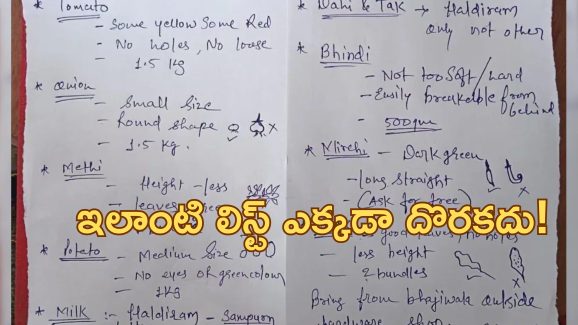 * Tomato
- Some yellow Some Red
- No holes, No loose
- 1.5 kg
* Onion
- Small Size
- Round shape
- 1.5 kg.
* Methi
- Height - less
- leaves
* Potato - Medium Size
- No eyes or green colour
- 1kg
* Milk :- Haldiram - Sampurn
* Dahi & Tak → Haldiram
only not other
* Bhindi
- Not too Soft / hard
- Easily breakable from
behind
- 500gm
* Mirchi - Dark green
- long straight
- (Ask for free)
- good leaves, No holes
- less height
- 2 bundles
Bring from bhajiwala outside
hardware shop
ఇలాంటి లిస్ట్ ఎక్కడా దొరకదు!